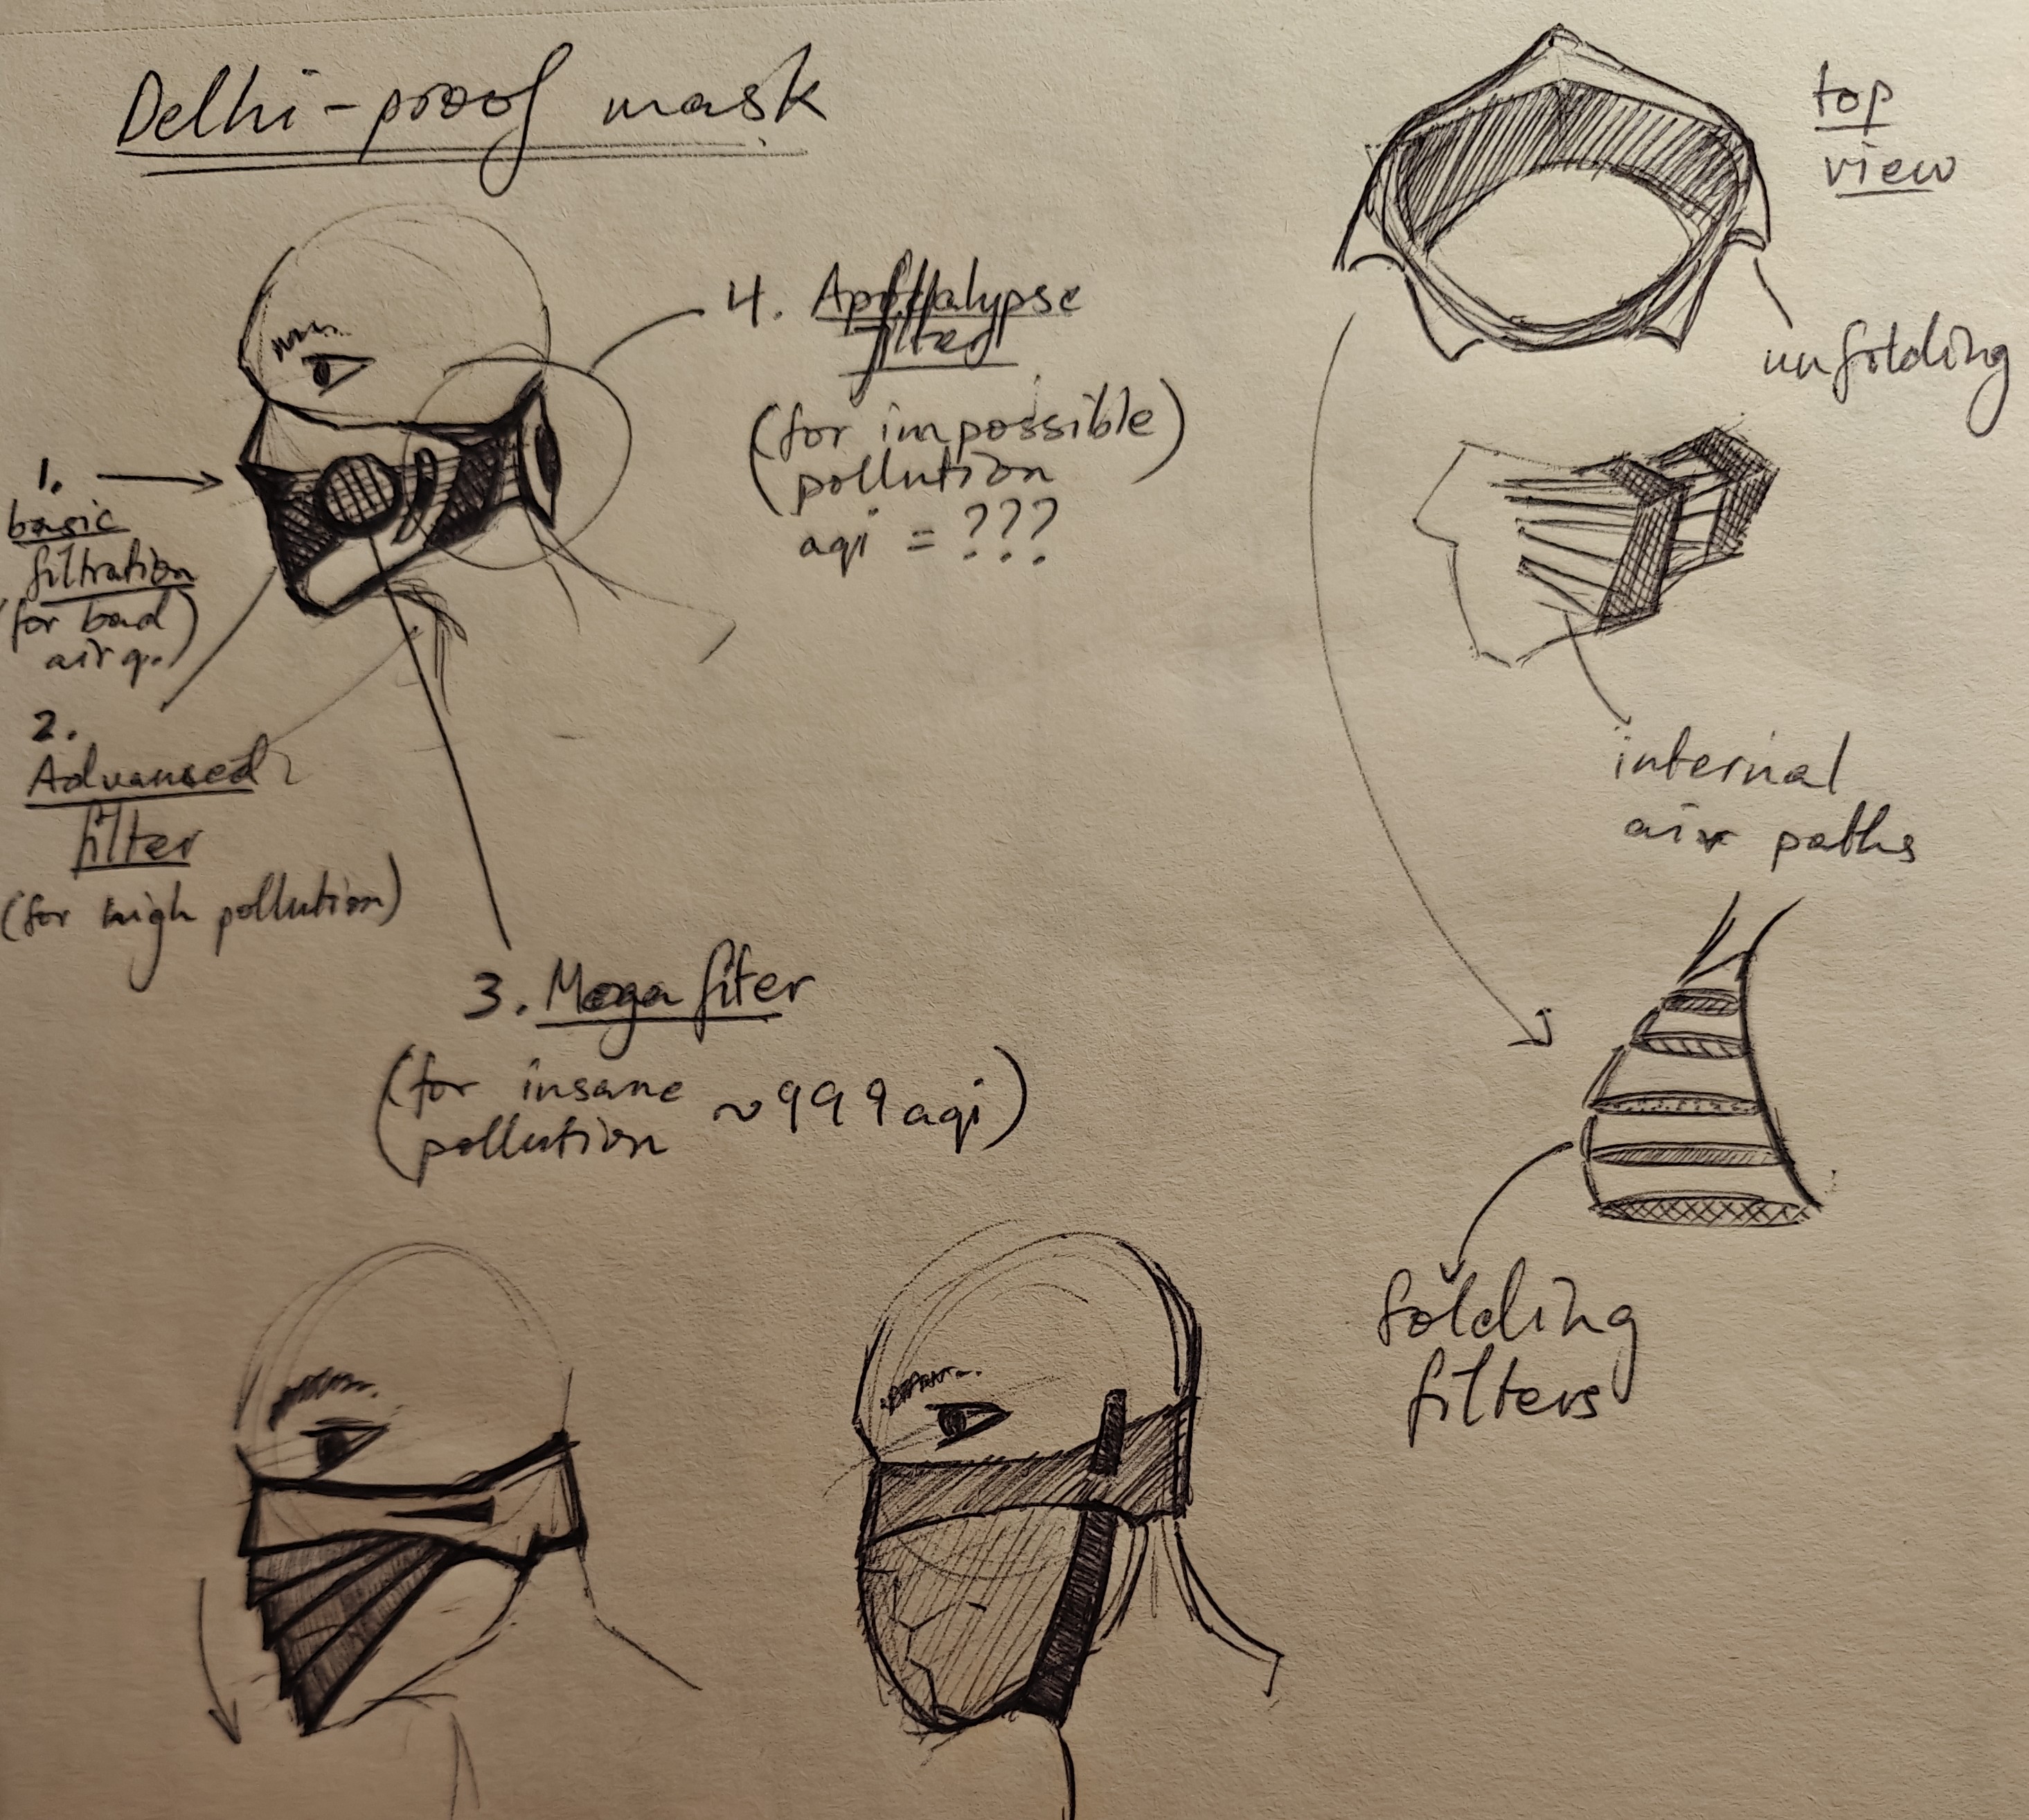 Delhi-proof mask
top
view
unfolding
4. Apocalypse
filter
(for impossible)
pollution
aqi = ???
1.
basic
filtration
(for bad)
air q.
2.
Advansed
filter
(for high pollution)
3. Mega fiter
(for insane ~999 aqi)
pollution
internal
air paths
folding
filters